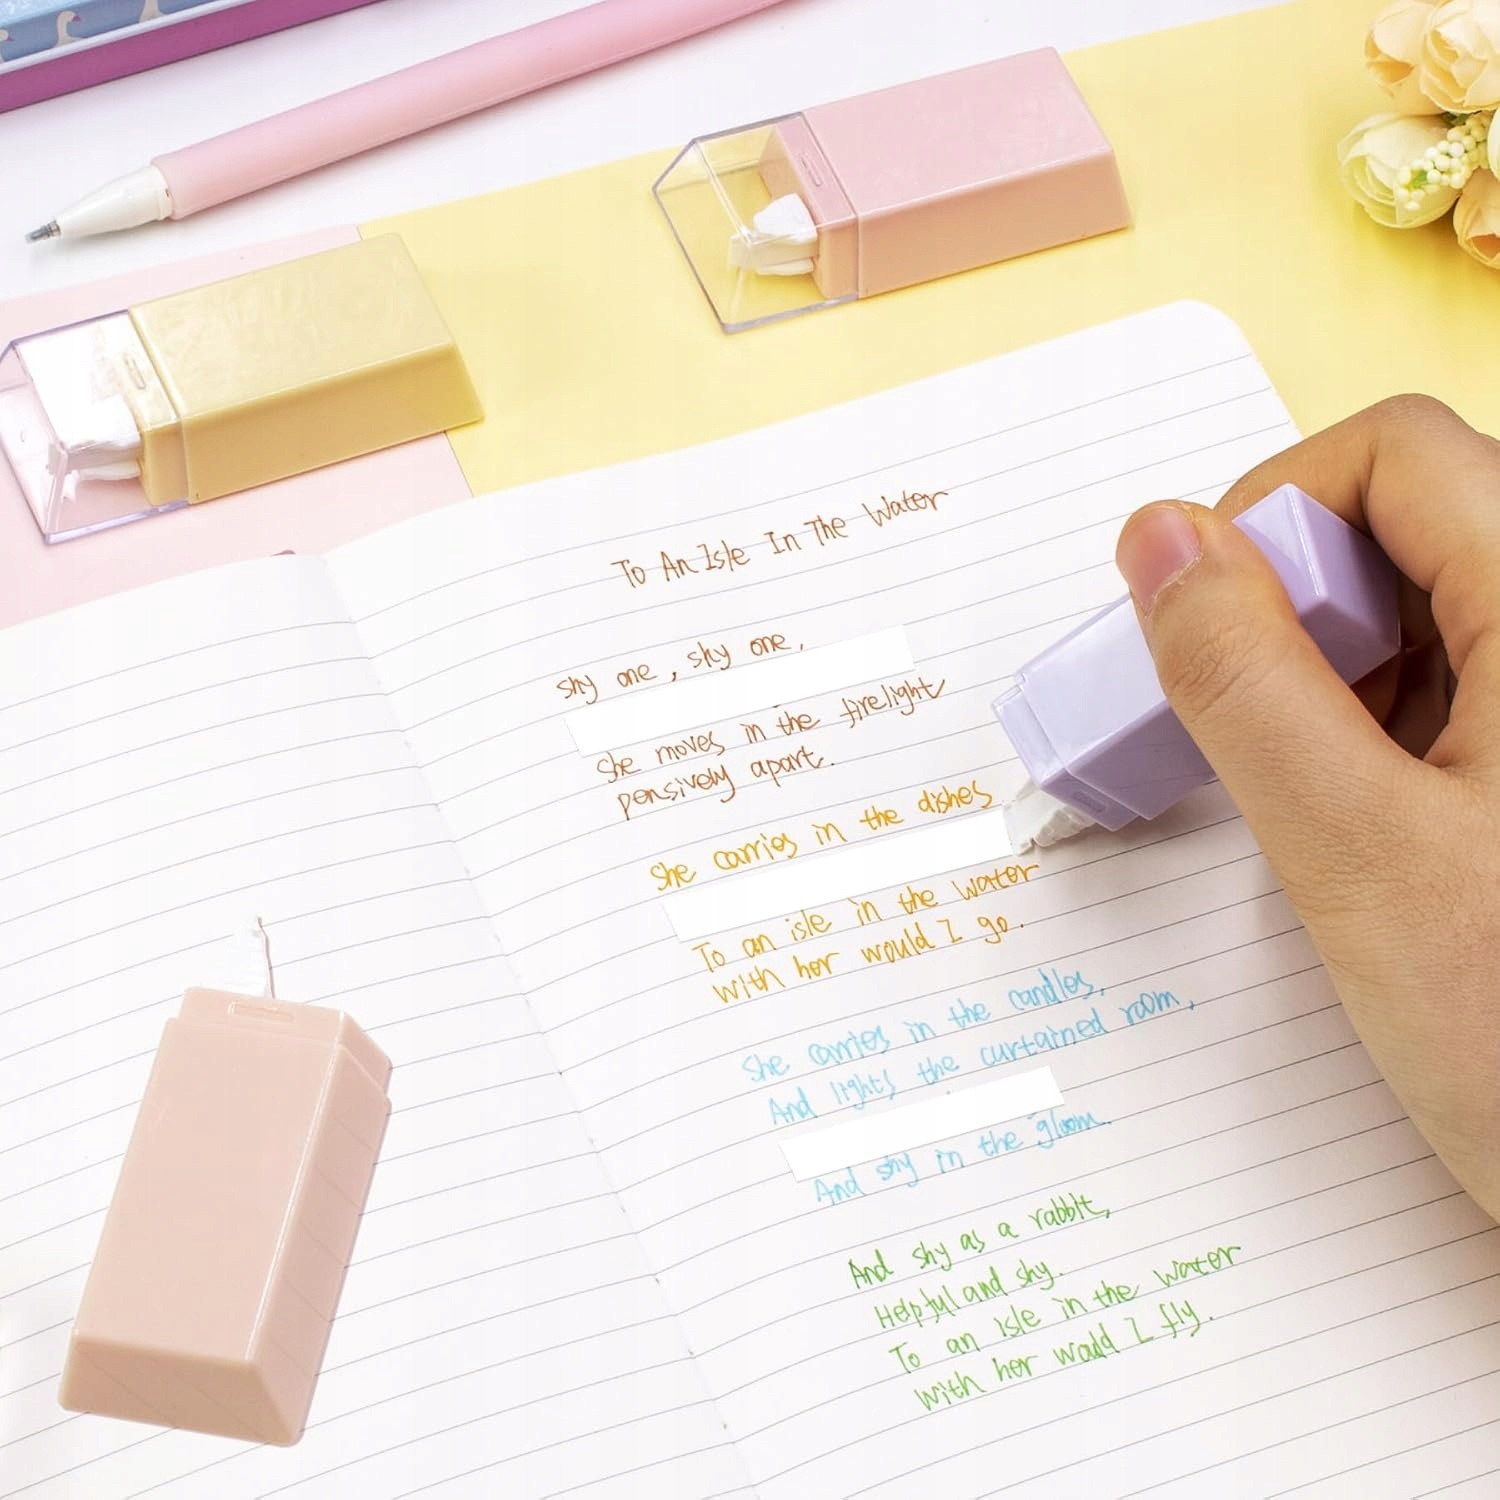 To An Isle In The Water
shy one, shy one,
she moves in the firelight
pensively apart.
She carries in the dishes
To an isle in the water
with her would I go.
She carries in the candles,
And lights the curtained room,
And shy in the gloom.
And shy as a rabbit,
Helpful and shy.
To an isle in the water
with her would I fly.